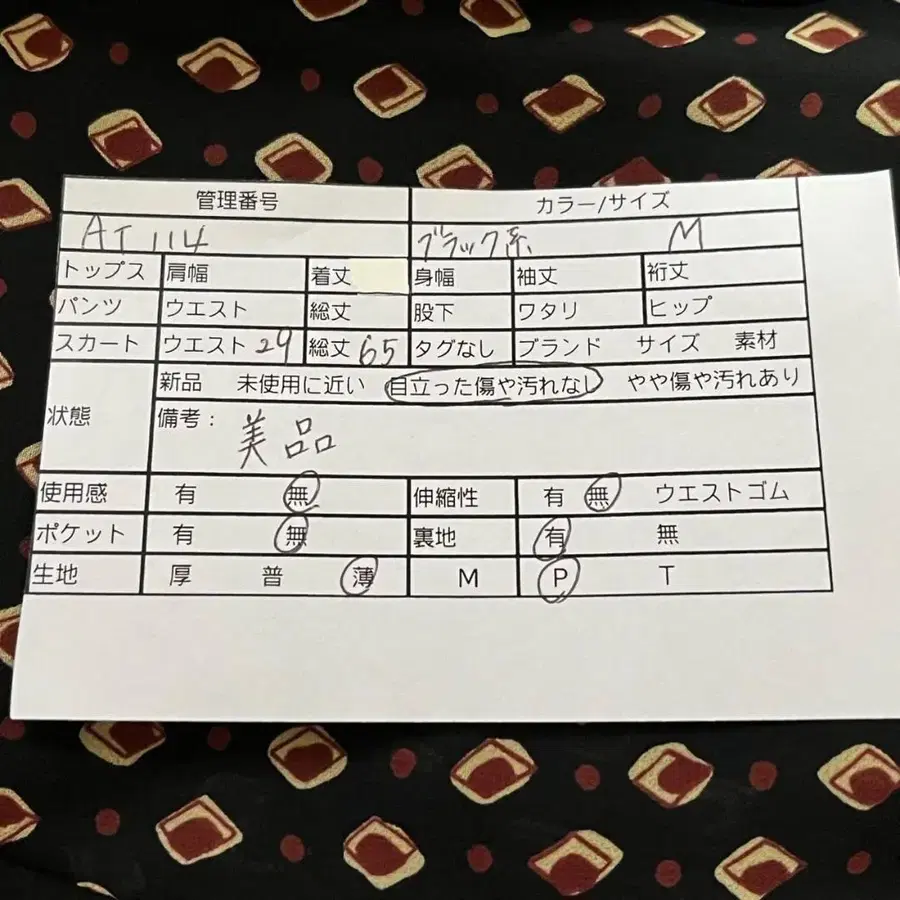 管理番号 カラー/サイズ
AT 114 ブラック系 M
トップス 肩幅 着丈 身幅 袖丈 裄丈
パンツ ウエスト 総丈 股下 ワタリ ヒップ
スカート ウエスト 29 総丈 65 タグなし ブランド サイズ 素材
状態 新品 未使用に近い 目立った傷や汚れなし やや傷や汚れあり
備考： 美品
使用感 有 無 伸縮性 有 無 ウエストゴム
ポケット 有 無 裏地 有 無
生地 厚 普 薄 M P T